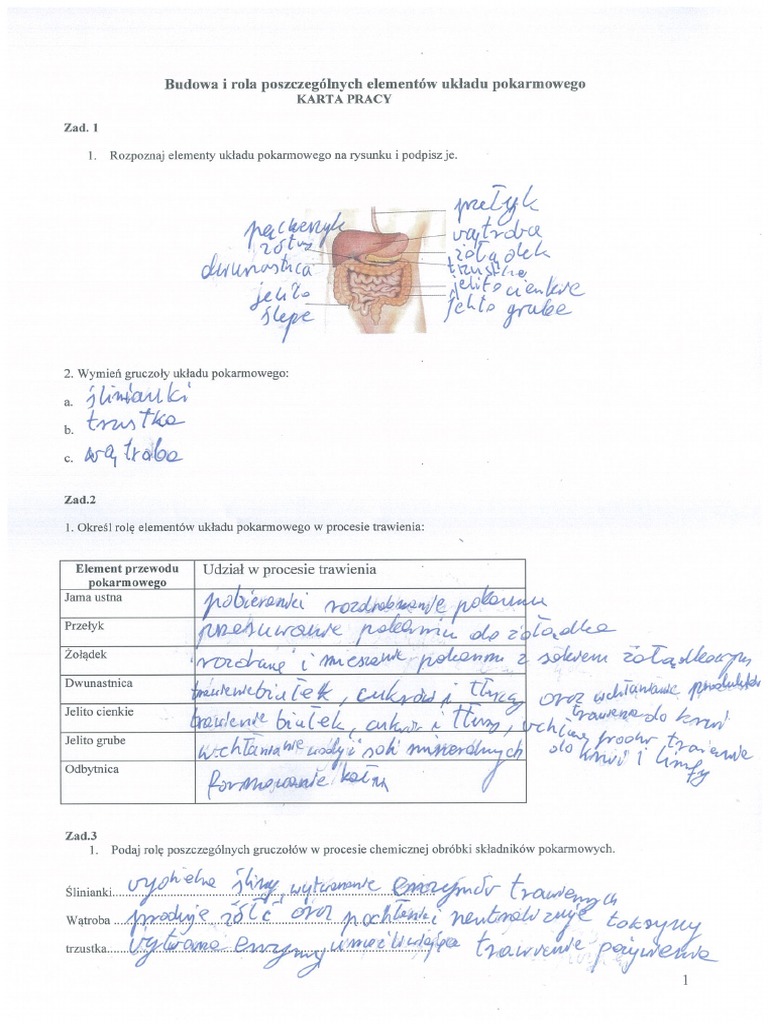 Budowa i rola poszczególnych elementów układu pokarmowego
KARTA PRACY
Zad. 1
1. Rozpoznaj elementy układu pokarmowego na rysunku i podpisz je.
pęcherzyk
żółciow
dwunastnica
jelito
ślepe
przełyk
wątroba
żołądek
trzustka
jelito cienkie
jelito grube
2. Wymień gruczoły układu pokarmowego:
a. ślinianki
b. trzustka
c. wątroba
Zad.2
1. Określ rolę elementów układu pokarmowego w procesie trawienia:
Element przewodu pokarmowego Udział w procesie trawienia
Jama ustna pobieranie i rozdrabnianie pokarmu
Przełyk przesuwanie pokarmu do żołądka
Żołądek i mieszanie pokarmu z sokiem żołądkowym
Dwunastnica trawienie białek, cukrów i tłuszczy oraz wchłanianie produktów trawienia do krwi
Jelito cienkie trawienie białek, cukrów i tłuszczy, trawienie do krwi i limfy
Jelito grube wchłanianie wody i soli mineralnych
Odbytnica formowanie kału
Zad.3
1. Podaj rolę poszczególnych gruczołów w procesie chemicznej obróbki składników pokarmowych.
Ślinianki wydziela śliny, wytwarzanie enzymów trawiennych
Wątroba produkuje żółć oraz pochłania i neutralizuje toksyny
trzustka wytwarza enzymy umożliwiające trawienie pożywienia
1